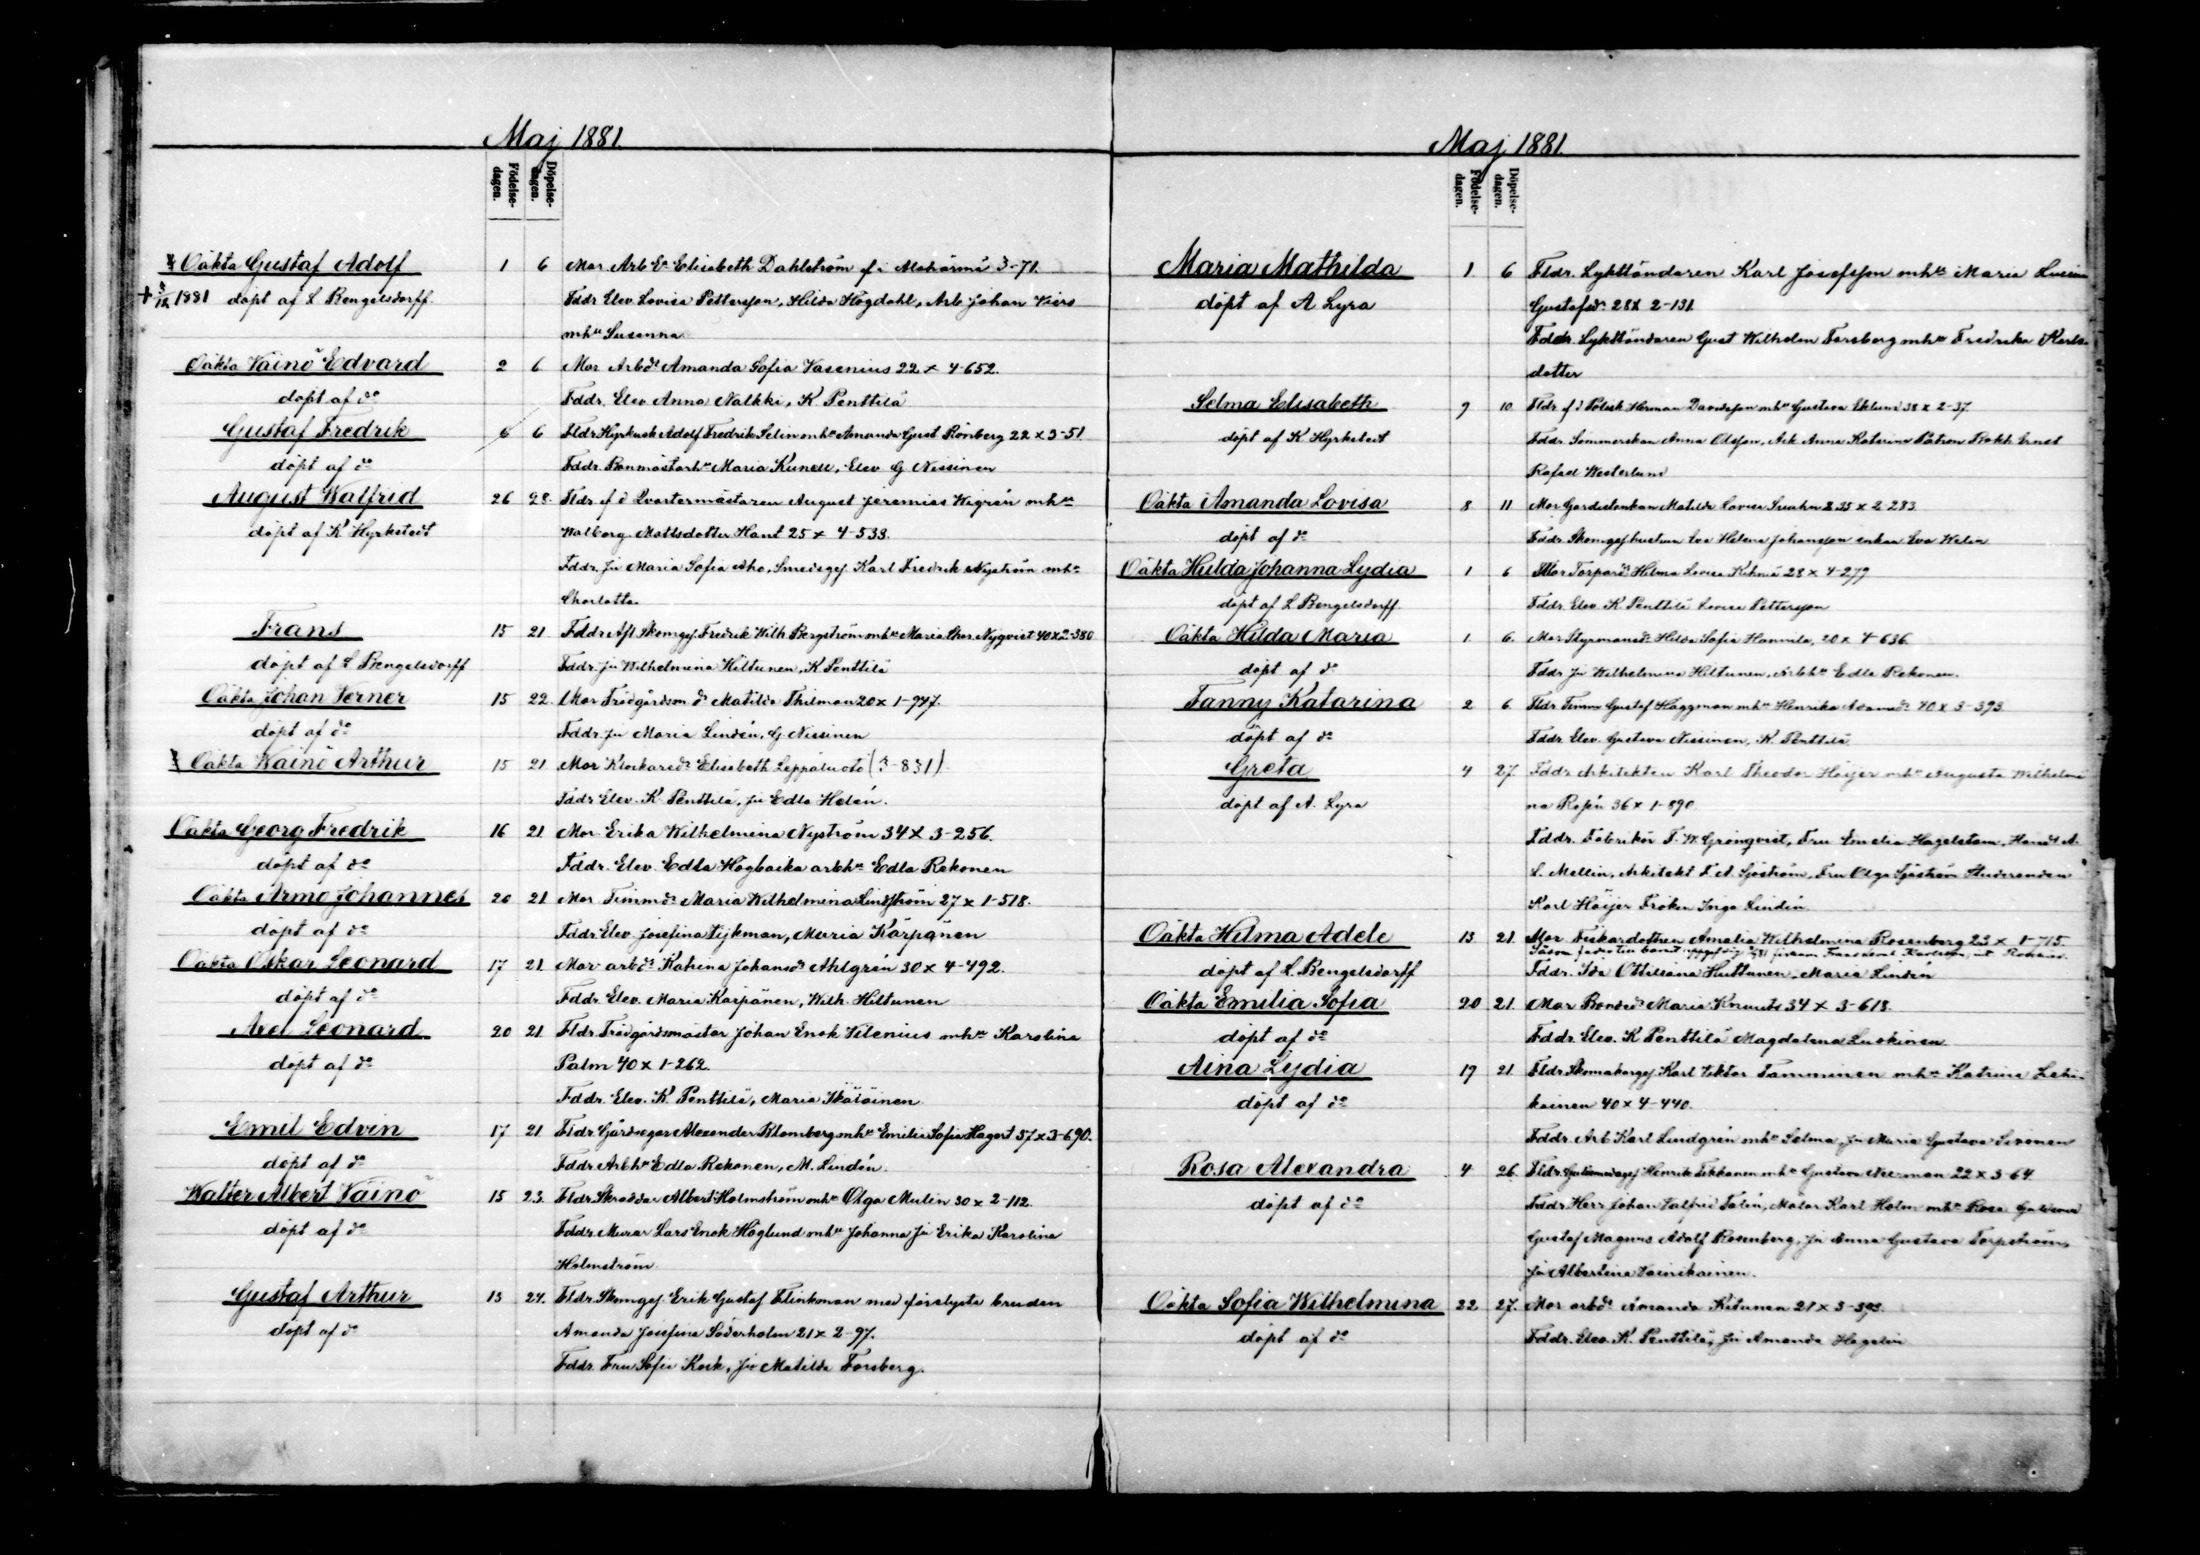 Maj 1881.
Födelse-dagen.
Döpelse-dagen.
Oäkta Gustaf Adolf 1 6 Mor Arb Elisabeth Dahlström f i Moharmä 3-71.
1881 döpt af L Bengelsdorff. Fddr Elev Lovisa Pettersson, Hilda Högdahl, Arb Johan
mhu Susanna
Oäkta Väinö Edvard 2 6 Mor Arbdr Amanda Sofia Vasenius 22 x 4-652.
döpt af do Fddr. Elev Anna Nalkki, K Penttilä
Gustaf Fredrik 6 6 Fldr Hyrkusk Adolf Fredrik Selin mhu Amanda Gust Rönberg 22 x 3-51
döpt af do Fddr. Banmästarhu Maria Kunell, Elev G Nissinen
August Walfrid 26 28. Fldr. f d Qvartermästaren August Jeremias Wigrén mhu
döpt af K Hyrkstedt Walborg Mattsdotter Hant 25 x 4-533.
Fddr. Ju Maria Sofia Aho, Smedsgej Karl Fredrik Nyström mhu
Charlotta
Frans 15 21 Fddr Afl Skomgej Fredrik Wilh Bergström mhu Maria Nyqvist 40 x 2-380
döpt af L Bengelsdorff Fddr. Ju Wilhelmina Hiltunen, K Penttilä
Oäkta Johan Verner 15 22. Mor Trädgårdsm dr Matilda Thilman 20 x 1-747.
döpt af do Fddr Ju Maria Lindén, G Nissinen
Oäkta Wäinö Arthur 15 21 Mor Klockaredr Elisabeth Leppäluoto (3-831)
Fddr Elev. K. Penttilä, Ju Edla Helén.
Oäkta Georg Fredrik 16 21 Mor Erika Wilhelmina Nyström 34 x 3-256.
döpt af do Fddr. Elev. Edla Högbacka arbhu Edla Rekonen
Oäkta Arma Johannes 20 21 Mor Timmdr Maria Wilhelmina Lindström 27 x 1-518.
döpt af do Fddr. Elev Josefina Tijkman, Maria Kärpänen
Oäkta Oskar Leonard 17 21 Mor arbdr Katrina Johansdr Ahlgrén 30 x 4-492.
döpt af do Fddr. Elev. Maria Karpänen, Wilh. Hiltunen
Axel Leonard 20 21 Fldr Trädgårdsmästar Johan Enok Vilenius mhu Karolina
döpt af do Palm 40 x 1-262.
Fddr. Elev. K. Penttilä, Maria Ikäläinen
Emil Edvin 17 21 Fldr Gårdsegar Alexander Blomberg mhu Emilia Sofia Hagert 37 x 3-690.
döpt af do Fddr Arbhu Edla Rekonen, M. Lindén.
Walter Albert Väinö 15 23. Fldr. Skräddar Albert Holmström mhu Olga Mulin 30 x 2-112.
döpt af do Fddr. Murar Lars Enok Höglund mhu Johanna Ju Erika Karolina
Holmström
Gustaf Arthur 13 24. Fldr. Skomgej. Erik Gustaf Flinkman med förelysta bruden
döpt af do Amanda Josefina Söderholm 21 x 2-97.
Fddr. Fru Sofia Kock, Ju Matilda Forsberg.
Maj 1881.
Födelse-dagen.
Döpelse-dagen.
Maria Mathilda 1 6 Fldr. Lykttändaren Karl Josefsson mhu Maria Lovisa
döpt af A Lyra Gustafsdr 28 x 2-131.
Fddr. Lykttändaren Gust Wilhelm Forsberg mhu Fredrika Karls-
dotter
Selma Elisabeth 9 10 Fldr f d Polisk Herman Davidsson mhu Gustava Eklund 38 x 2-37.
döpt af K Hyrkstedt Fddr. Sömmerskan Anna Olsson, Arb Anna Katarina Ernst
Rafael Westerlund
Oäkta Amanda Lovisa 8 11 Mor Gardistenkan Matilda Lovisa 35 x 2-283.
döpt af do Fddr. Skomgejhustrun Eva Helena Johansson enkan Eva Welin
Oäkta Hulda Johanna Lydia 1 6 Mor Torpardr Hilma Lovisa 28 x 4-279
döpt af L Bengelsdorff. Fddr. Elev. K Penttilä Lovisa Pettersson
Oäkta Hilda Maria 1 6. Mor Styrmansdr Hilda Sofia Hannila, 20 x 4-636.
döpt af do Fddr Ju Wilhelmina Hiltunen, Arbhu Edla Rekonen.
Fanny Katarina 2 6 Fldr Timm Gustaf Häggman mhu Henrika Adamsdr 40 x 3-393
döpt af do Fddr. Elev. Gustava Nissinen, K. Penttilä
Greta 4 27. Fddr Arkitekten Karl Theodor Höijer mhu Augusta Wilhelmi
döpt af A. Lyra na 36 x 1-890.
Fddr. Fabrikör F. W. Grönqvist, Fru Emelia Hagelstam, A.
L. Mellin, Arkitekt F. A. Sjöström, Fru Olga Sjöström Studeranden
Karl Höijer Fröken Inga Lindén
Oäkta Hilma Adele 13 21. Mor Fiskardottren Amalia Wilhelmina Rosenberg 23 x 1-715.
döpt af L. Bengelsdorff Fddr. Ida Ottiliana Huttunen, Maria Lindén
Oäkta Emilia Sofia 20 21. Mor Bondedr Maria 34 x 3-618.
döpt af do Fddr. Elev. K Penttilä Magdalena Luskinen
Aina Lydia 19 21. Fldr. Skomakargej Karl Viktor Tamminen mhu Katrina Leh-
döpt af do kainen 40 x 4-440.
Fddr. Arb Karl Lindgrén mhu Selma, Ju Maria Gustava Sironen
Rosa Alexandra 4 26. Fldr. Henrik Tikkanen mhu Gustava 22 x 3-64.
döpt af do Fddr Herr Johan Valfrid Målar Karl Holm mhu Rosa
Gustaf Magnus Adolf Rosenberg, Ju Anna Gustava Torpström,
Ju Albertina Vainikainen.
Oäkta Sofia Wilhelmina 22 27. Mor arbdr Amanda Kitunen 21 x 3-393.
döpt af do Fddr. Elev. K. Penttilä, Ju Amanda Hagelin